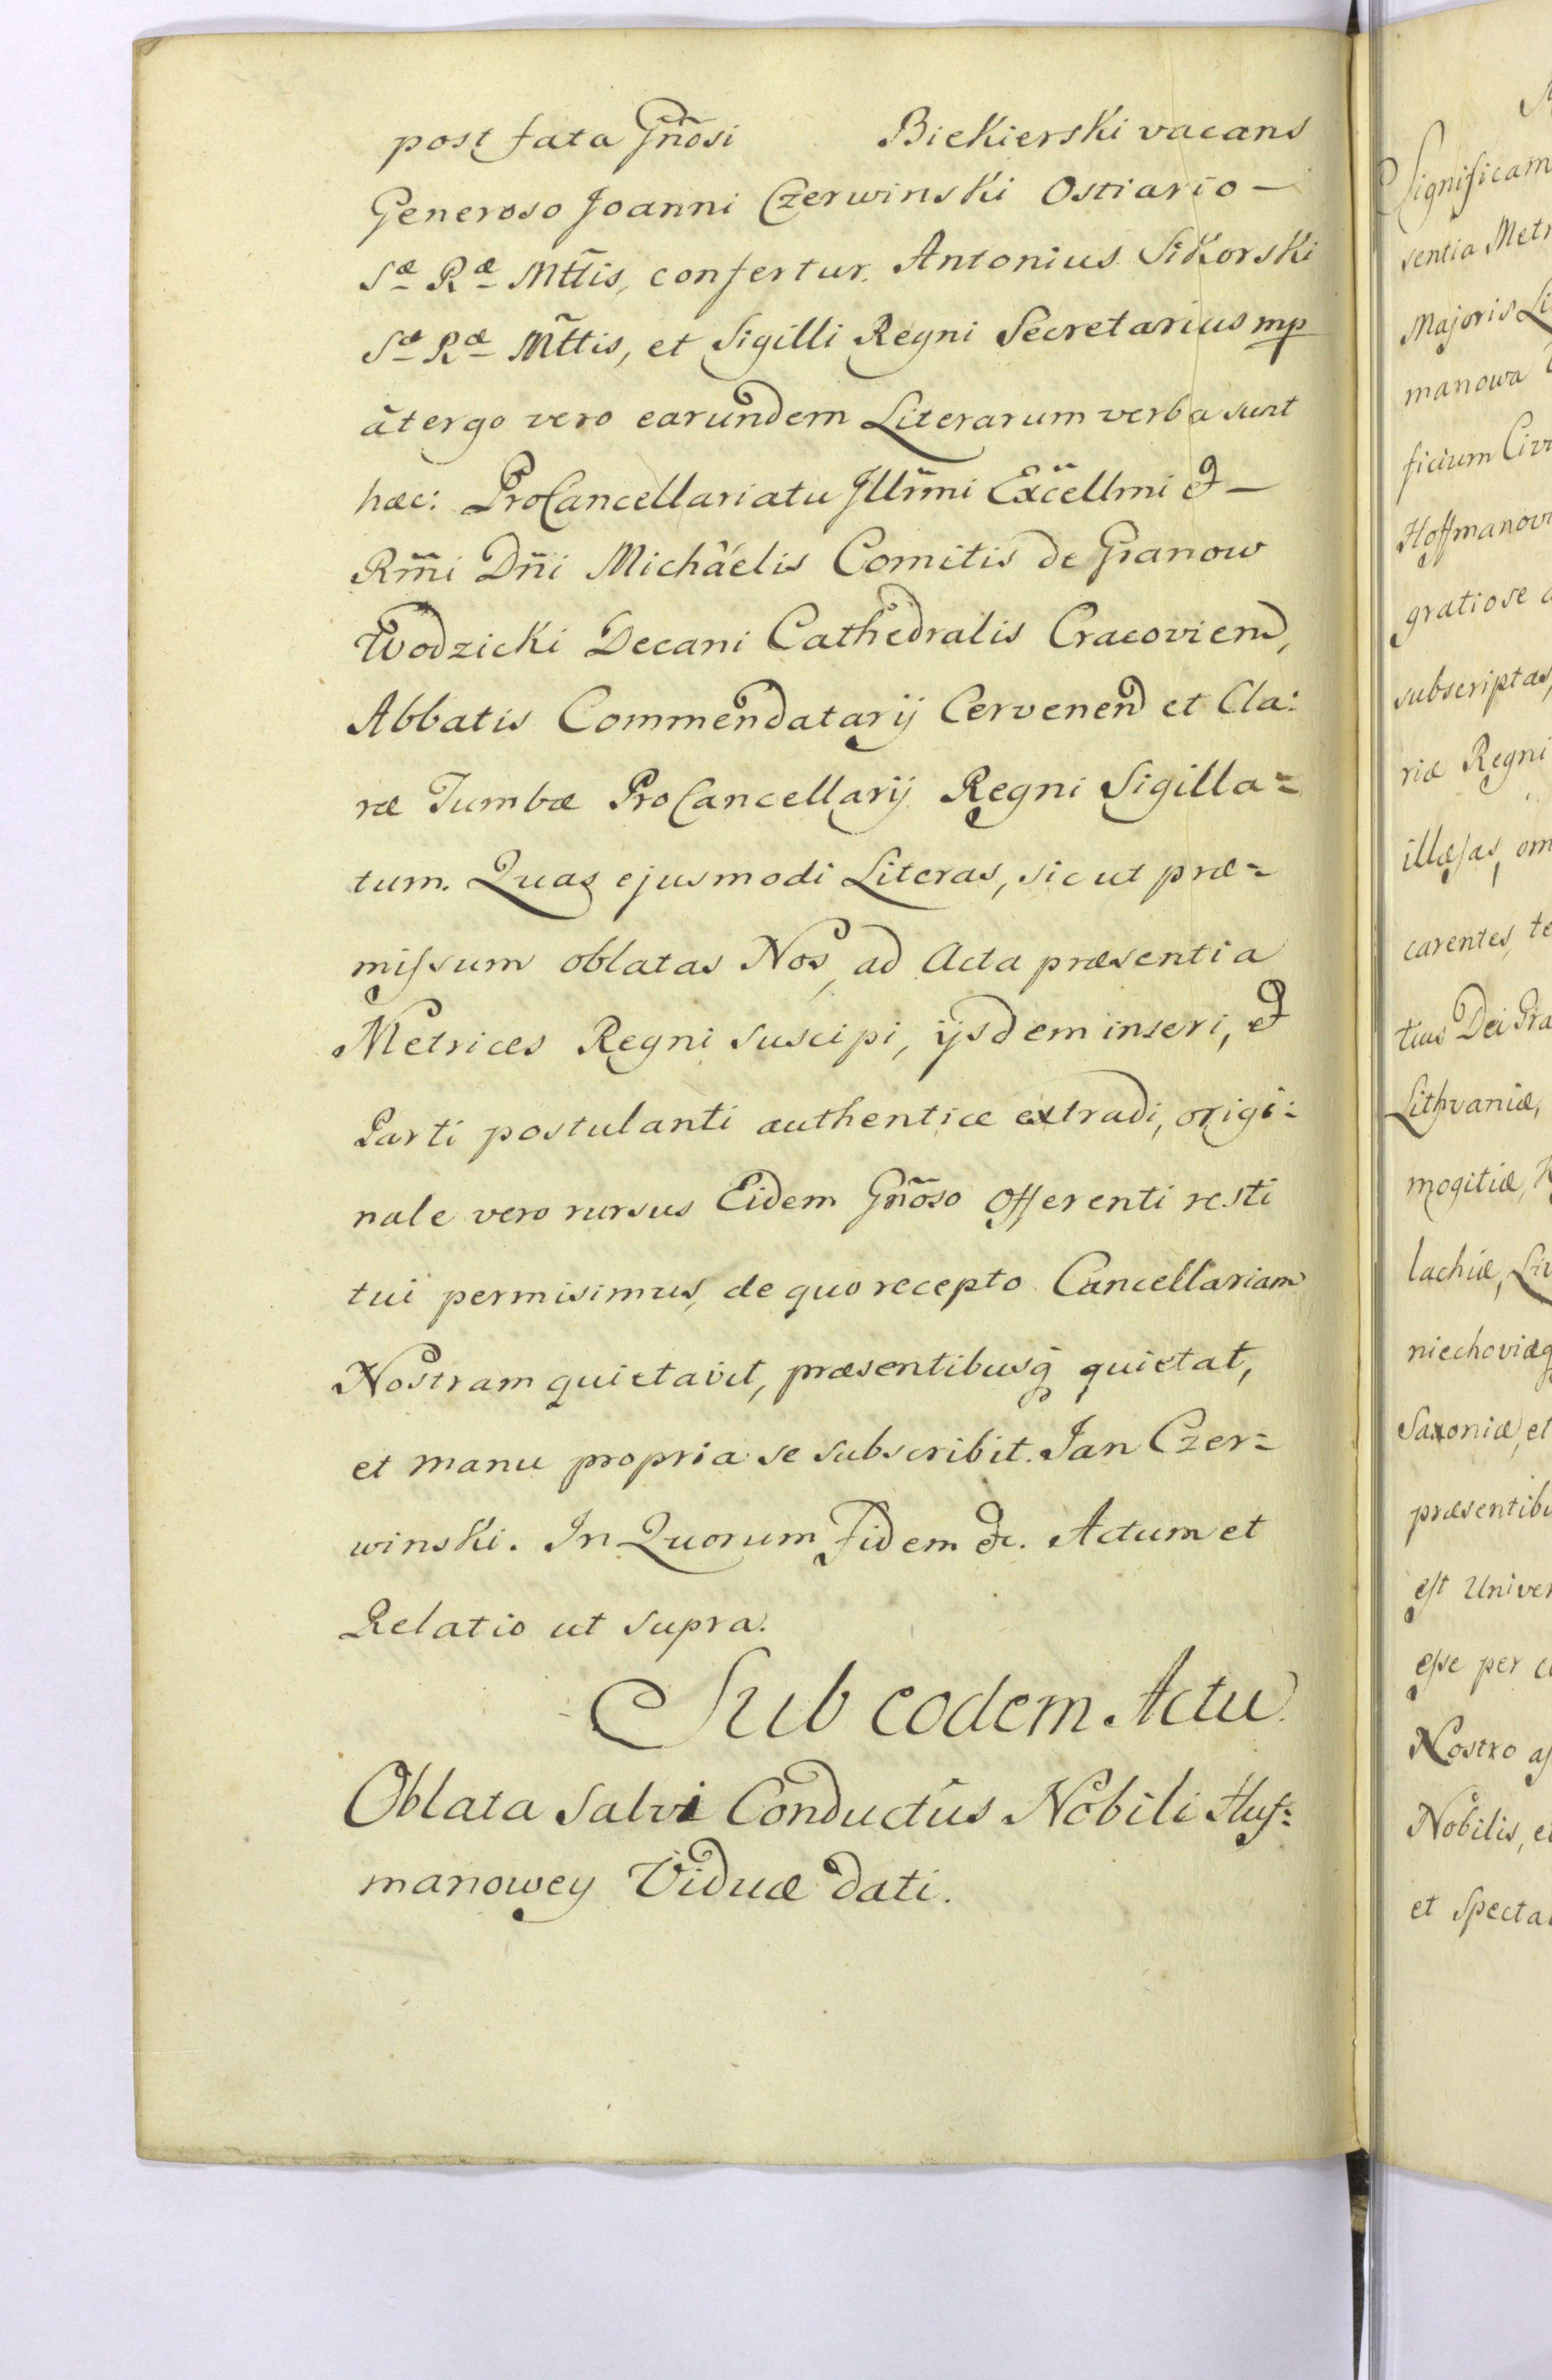 post fata Gñosi Biekierski vacans
Generoso Joanni Czerwinski Ostiario —
Sæ Ræ Mttis, confertur. Antonius Sikorski
Sæ Ræ Mttis, et Sigilli Regni Secretarius mp
àtergo vero earundem Literarum verba sunt
hæc: ProCancellariatu Jllrmi Excellmi & —
Rmi Dñi Michaelis Comitis de Granow
Wodzicki Decani Cathedralis Cracovien,
Abbatis Commendatarij Cervenen et Cla:
ræ Tumbæ ProCancellarij Regni Sigilla=
tum. Quas ejusmodi Literas, sicut præ=
missum oblatas Nos, ad Acta præsentia
Metrices Regni suscipi, ijsdem inseri, &
Parti postulanti authentice extradi, origi=
nale vero rursus Eidem Gñoso Offerenti resti
tui permisimus, de quo recepto Cancellariam
Nostram quietavit, præsentibusq quietat,
et manu propria se subscribit. Jan Czer=
winski. In Quorum Fidem &c. Actum et
Relatio ut supra.
Sub eodem Actu.
Oblata Salvi Conductûs Nobili Huf=
manowey Viduæ dati.
Significam
sentia Metr
Majoris Li
manowa
ficium Civi
Hoffmanovi
gratiose
subscriptas,
riæ Regni
illæsas, om
carentes, te
tius Dei Gra
Lithvaniæ,
mogitiæ,
lachiæ, Liv
niechoviæq
Saxoniæ, et
præsentibu
est Univer
esse per
Nostro as
Nobilis, et
et Specta